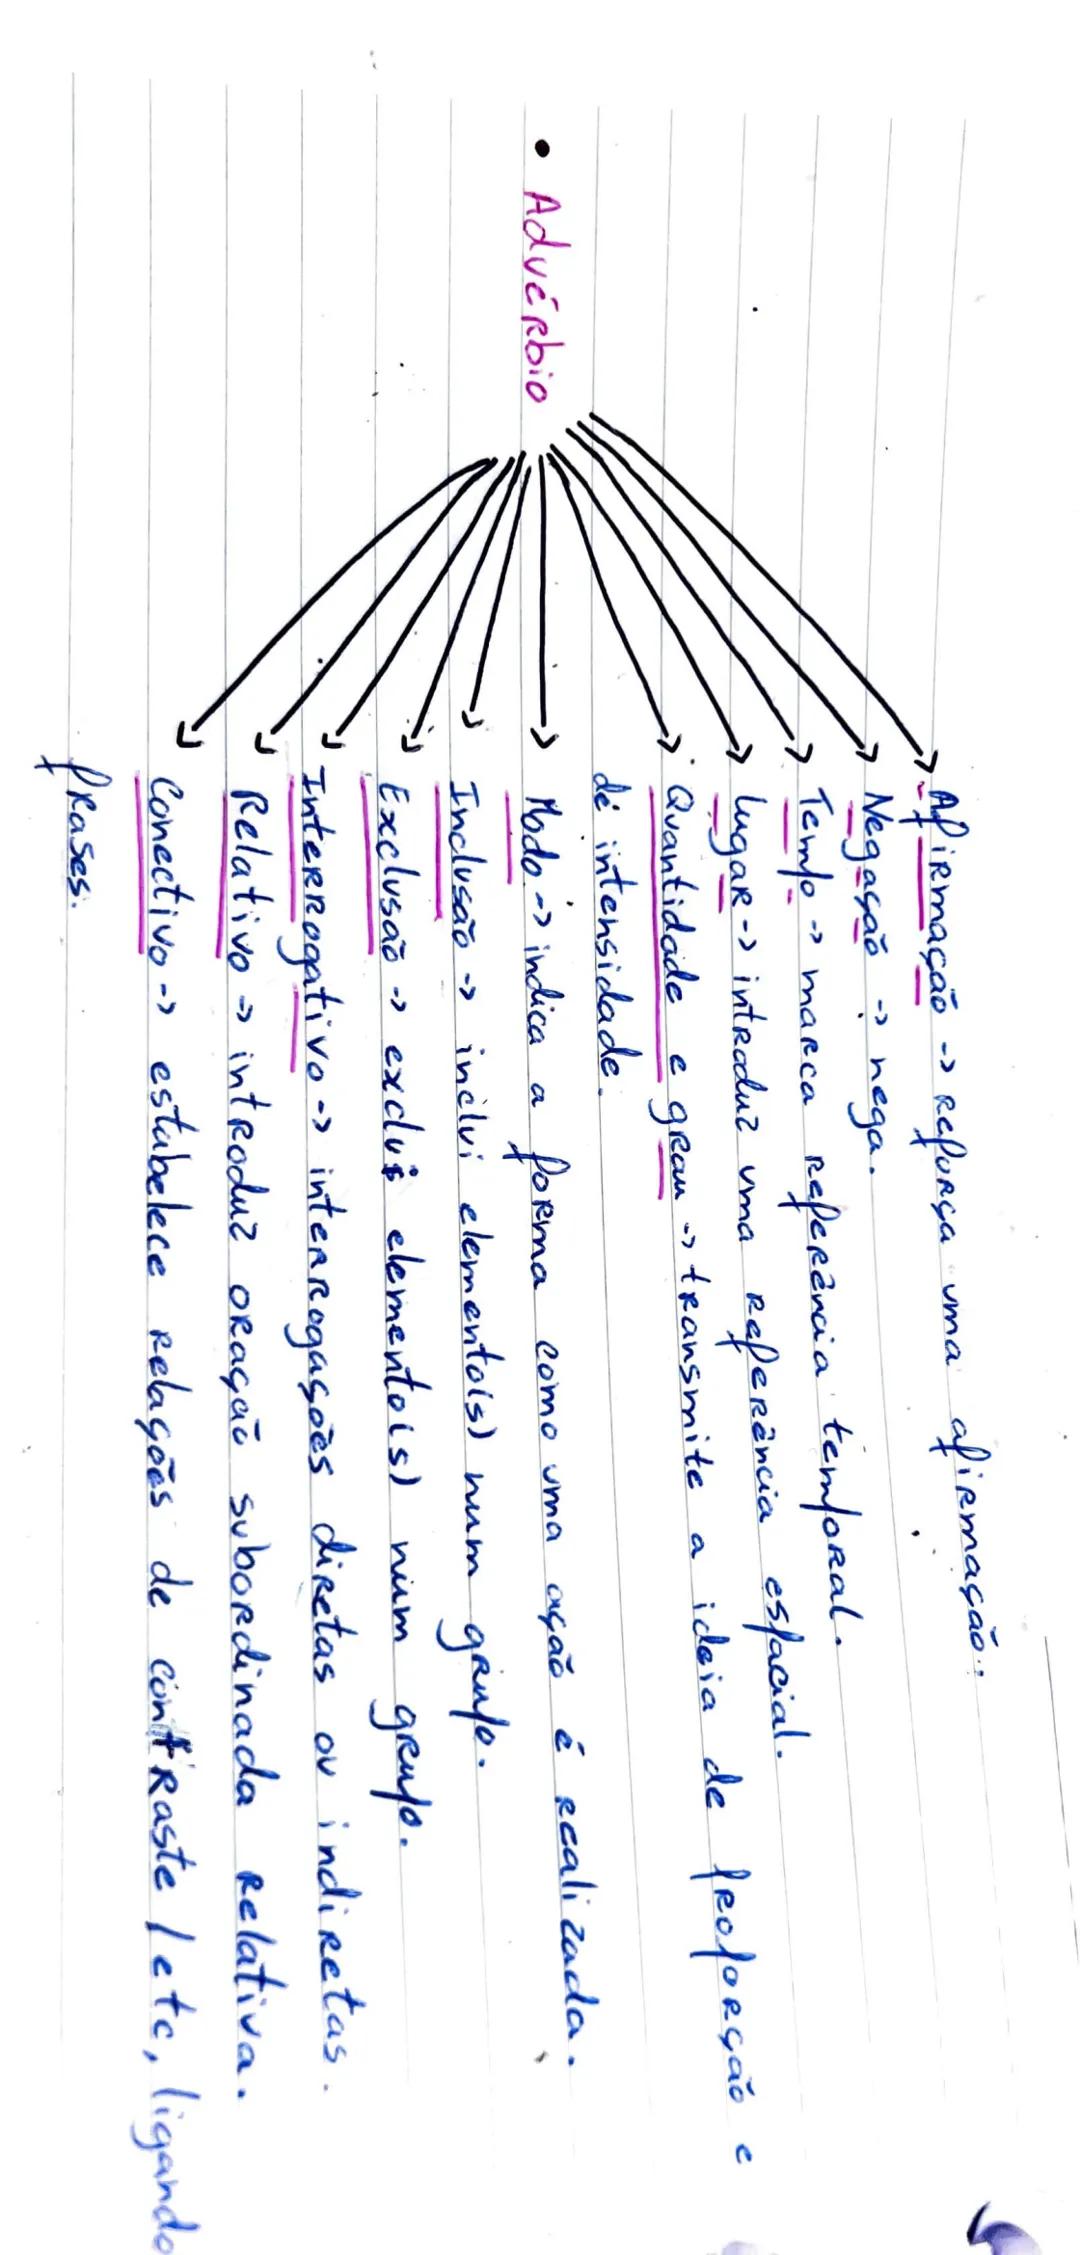 • Advérbio
Afirmação -> reforça uma afirmação.
Negasão -> nega.
Tempo -> marca referência temporal.
lugar -> introduz uma referência espacial.
Quantidade e grau -> transmite a ideia de proporção e
de intensidade.
Modo -> indica a forma como uma ação é realizada.
Inclusão -> inclui elemento(s) num grupo.
Exclusão -> exclui elemento(s) num grupo.
Interrogativo -> interrogasões diretas ou indiretas.
Relativo -> introduz oração subordinada relativa.
Conectivo -> estabelece relações de contraste/etc, ligando
frases.